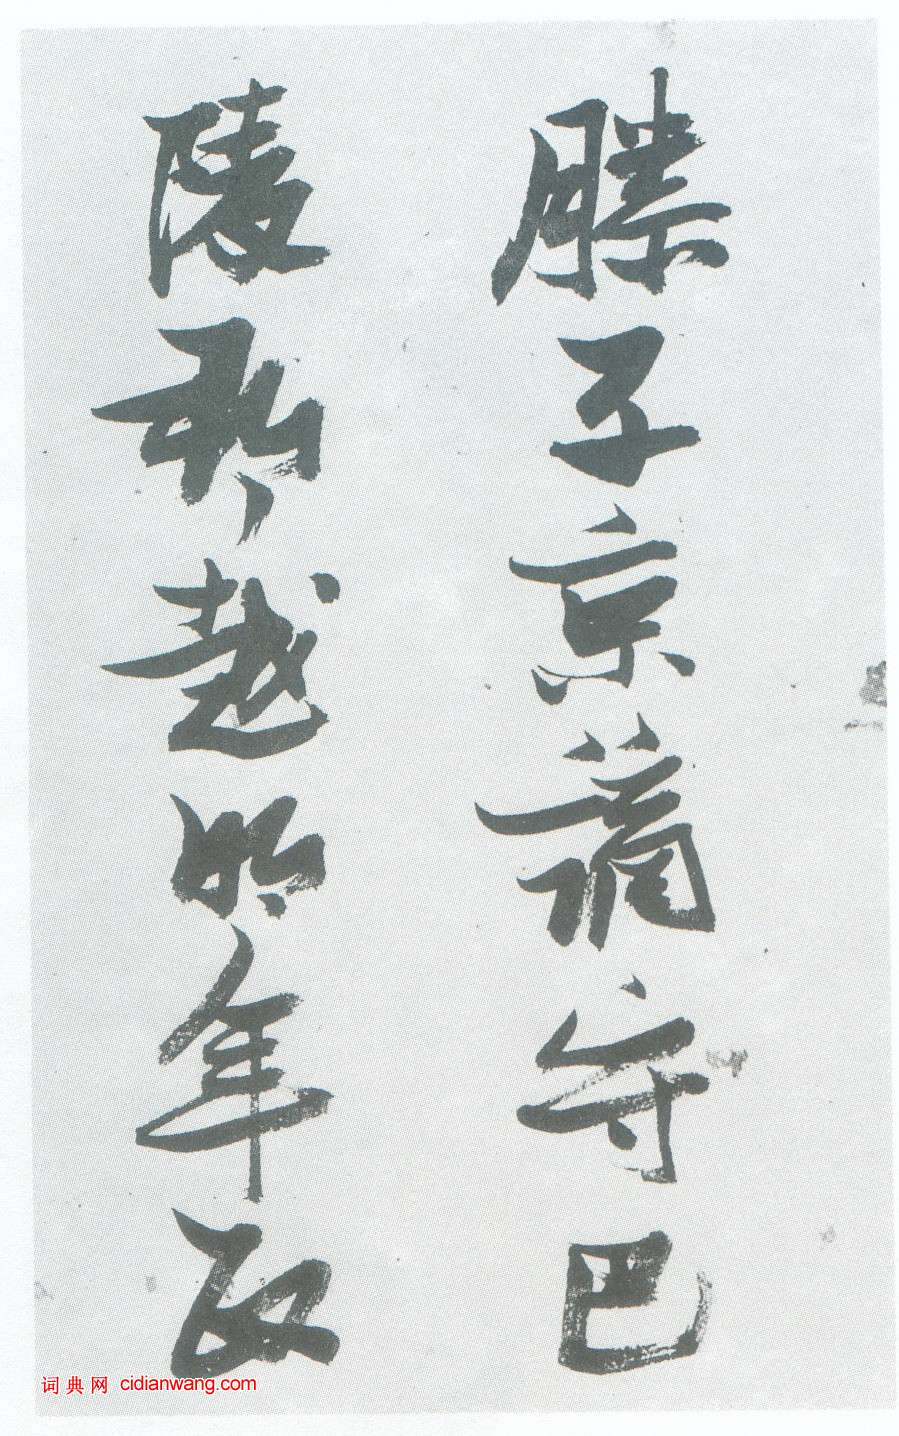 滕子京謫守巴
陵郡越明年政
词典网 cidianwang.com